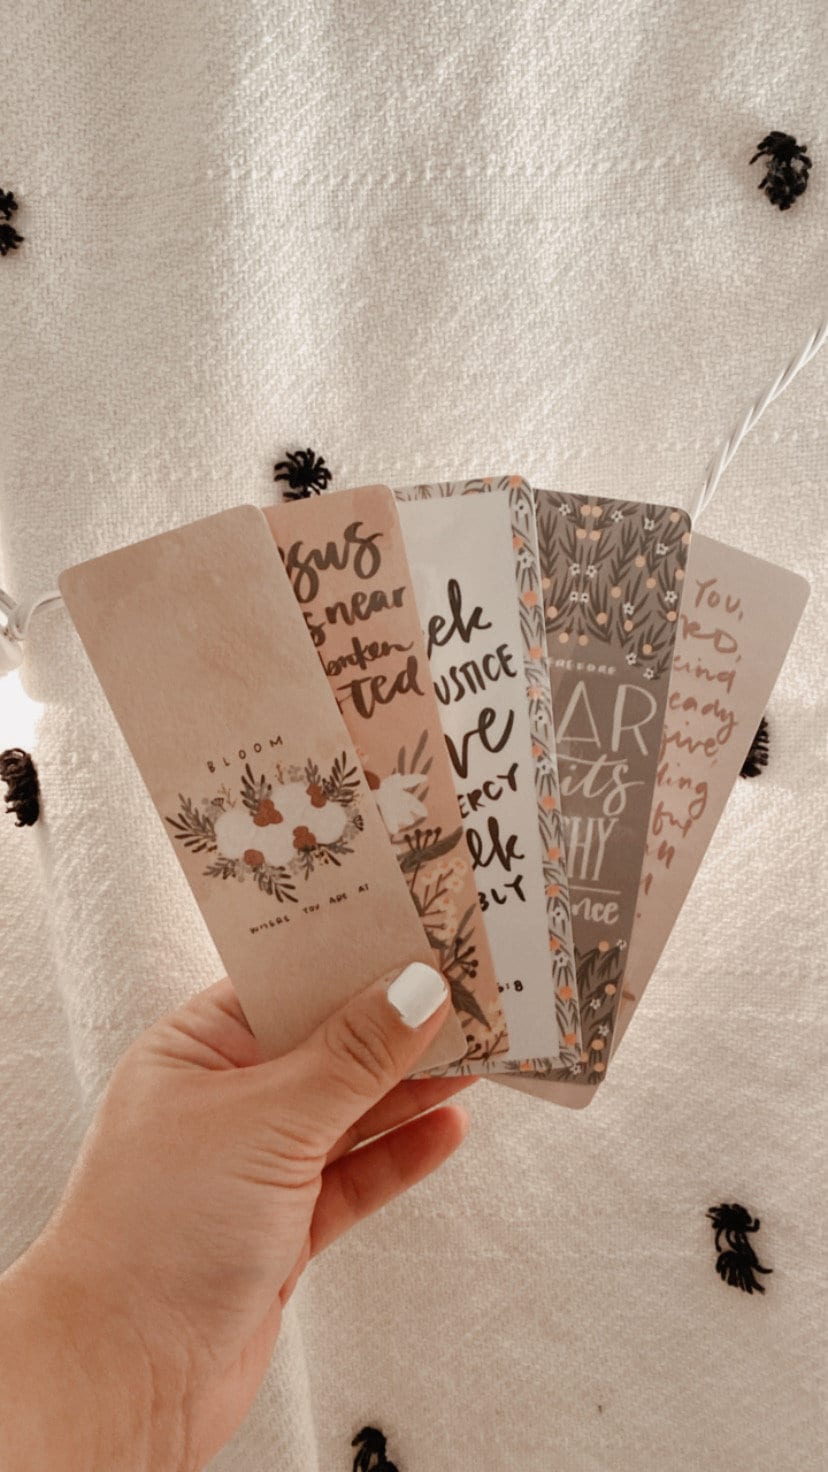 BLOOM
WHERE YOU ARE AT
sus
s near
broken
ted
ek
USTICE
ve
ERCY
lk
BLY
6:8
EREFORE
AR
its
HY
nce
You,
RD,
ind
eady
give,
ding
ful